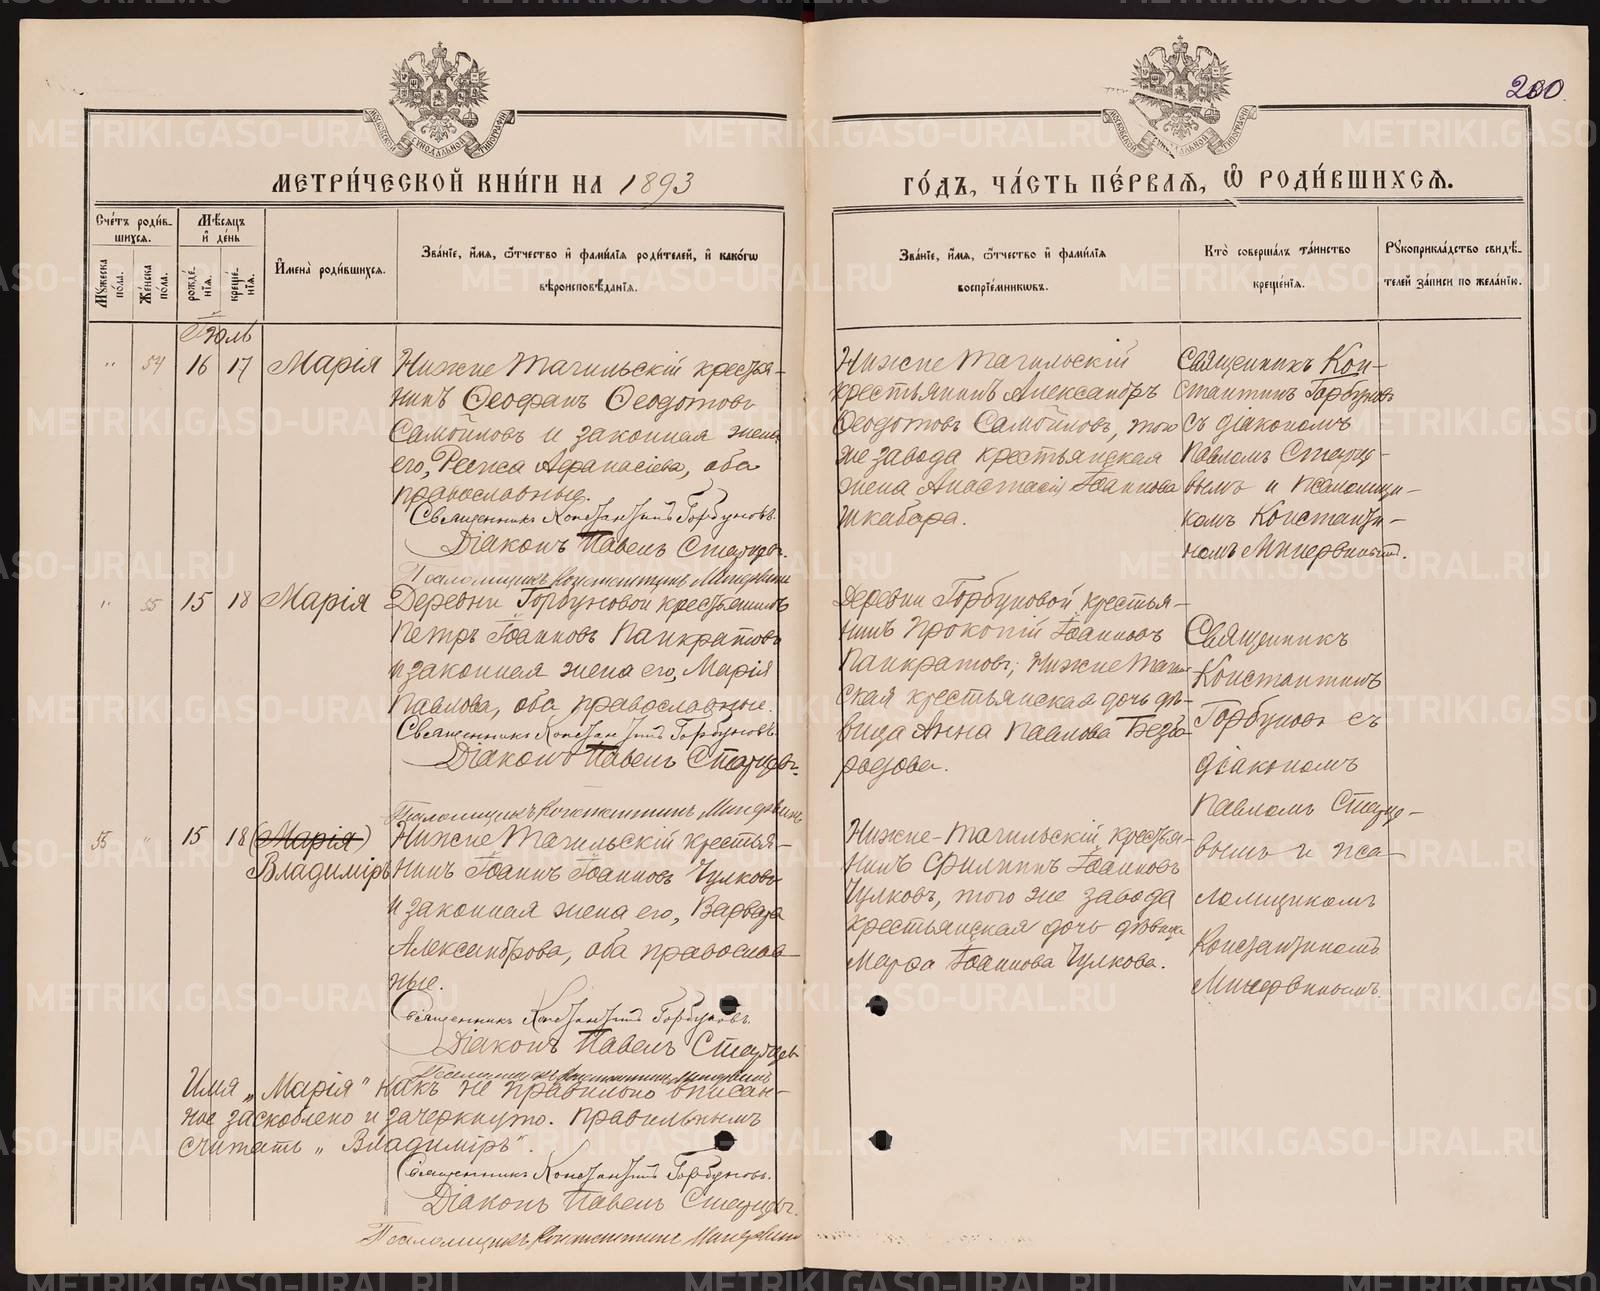 200.
МОСКОВСКОЙ СѴНОДАЛЬНОЙ ТИПОГРАФІИ
МОСКОВСКОЙ СѴНОДАЛЬНОЙ ТИПОГРАФІИ
МЕТРИ́ЧЕСКОЙ КНИ́ГИ НА 1893
ГО́ДЪ, ЧА́СТЬ ПЕ́РВАѦ, Ѽ РОДИ́ВШИХСѦ.
Сче́тъ роди́в-
шихсѧ.
Мꙋ́жеска по́ла.
Же́нска по́ла.
Мѣ́сѧцъ
и҆ де́нь
рожде́-
нїѧ.
креще́-
нїѧ.
И҆мена̀ роди́вшихсѧ.
Зва́нїе, и҆́мѧ, ѻ҆́тчество и҆ фами́лїѧ роди́телей, и҆ како́гѡ
вѣроисповѣ́данїѧ.
Зва́нїе, и҆́мѧ, ѻ҆́тчество и҆ фами́лїѧ
воспрїе́мникѡвъ.
Кто̀ соверша́лъ та́инство
креще́нїѧ.
Рꙋкоприкла́дство свидѣ́-
телей за́писи по жела́нїю.
Іюль
" 54 16 17 Марія
Нижне Тагильскій крестья-
нинъ Ѳеофанъ Ѳеодотовъ
Самойловъ и законная жена
его, Раиса Афанасіева, оба
православные.
Священникъ Константинъ Горбуновъ.
Діаконъ Павелъ Старцевъ.
Псаломщикъ Константинъ Минервинъ
Нижне Тагильскій
крестьянинъ Александръ
Ѳеодотовъ Самойловъ, того
же завода крестьянская
жена Анастасія Іоаннова
Шкабара.
Священникъ Кон-
стантинъ Горбуновъ
съ діакономъ
Павломъ Старце-
вымъ и псаломщи-
комъ Константи-
номъ Минервинымъ.
" 55 15 18 Марія
Деревни Горбуновой крестьянинъ
Петръ Іоанновъ Панкратовъ
и законная жена его, Марія
Павлова, оба православные.
Священникъ Константинъ Горбуновъ
Діаконъ Павелъ Старцевъ.
Псаломщикъ Константинъ Минервинъ
Деревни Горбуновой крестья-
нинъ Прокопій Іоанновъ
Панкратовъ; Нижне Тагиль-
ская крестьянская дочь дѣ-
вица Анна Павлова Безъ-
родова.
Священникъ
Константинъ
Горбуновъ съ
діакономъ
Павломъ Старце-
вымъ и пса-
ломщикомъ
Константиномъ
Минервинымъ.
55 " 15 18 (Марія)
Владиміръ
Нижне Тагильскій крестья-
нинъ Іоаннъ Іоанновъ Чулковъ
и законная жена его, Варвара
Александрова, оба православ-
ные.
Священникъ Константинъ Горбуновъ.
Діаконъ Павелъ Старцевъ
Псаломщикъ Константинъ Минервинъ
Нижне-Тагильскій крестья-
нинъ Филиппъ Іоанновъ
Чулковъ, того же завода
крестьянская дочь дѣвица
Марѳа Іоаннова Чулкова.
Имя „Марія" какъ не правильно вписан-
ное заскоблено и зачеркнуто. Правильнымъ
считать „Владиміръ".
Священникъ Константинъ Горбуновъ.
Діаконъ Павелъ Старцевъ.
Псаломщикъ Константинъ Минервинъ
METRIKI.GASO-URAL.RU